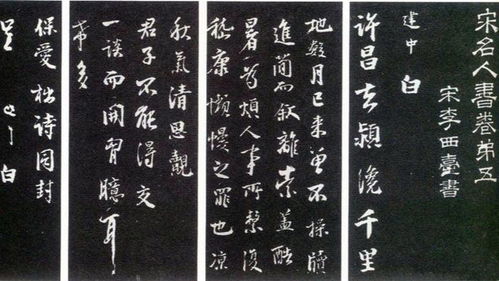 宋名人書卷第五
宋李西臺書
建中白
許昌去潁千里
地數月已来曾不操牘
進簡而叙離索蓋酷
暑為煩人事所繫復
嵇康懶慢之罪也凉
秋氣清思覿
君子不能得交
一談而開胷臆耳
多
保愛拙詩同封
呈 白